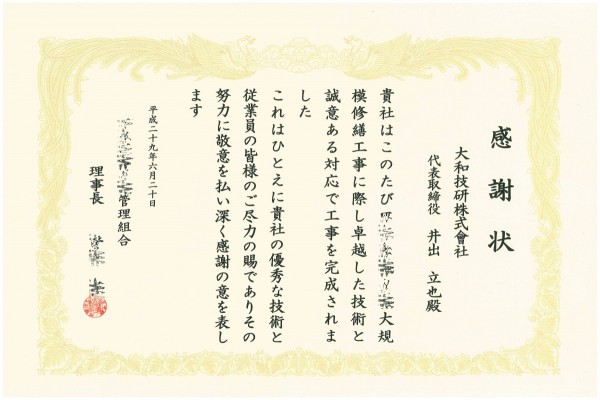 感謝状
大和技研株式會社
代表取締役 井出 立也殿
貴社はこのたび 大規
模修繕工事に際し卓越した技術と
誠意ある対応で工事を完成されま
した
これはひとえに貴社の優秀な技術と
従業員の皆様のご尽力の賜でありその
努力に敬意を払い深く感謝の意を表し
ます
平成二十九年六月二十日
管理組合
理事長